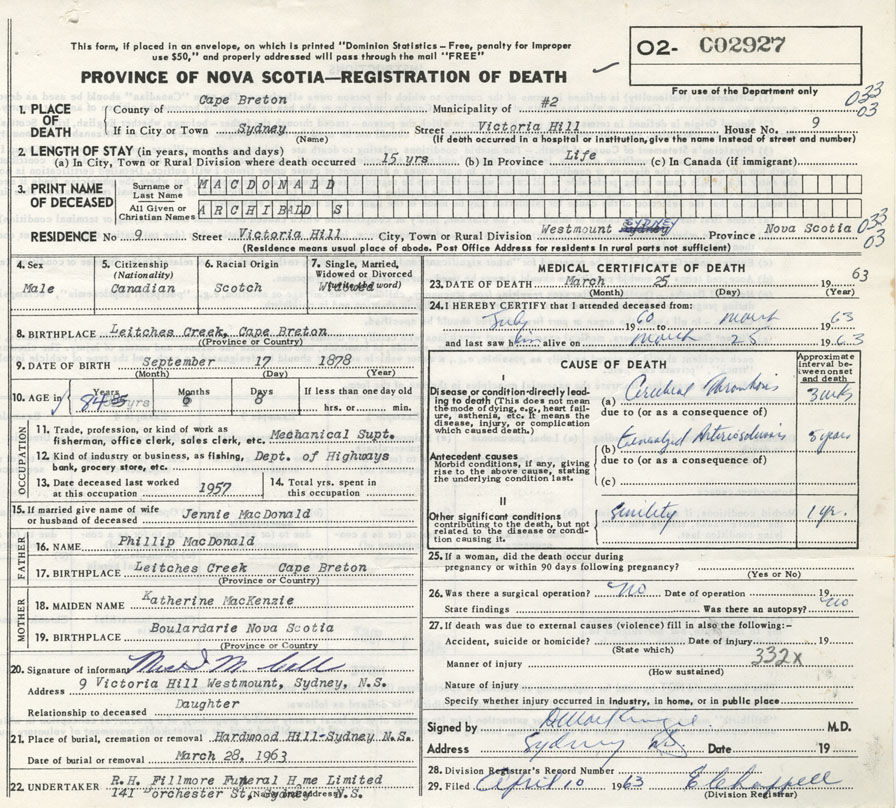 This form, if placed in an envelope, on which is printed "Dominion Statistics – Free, penalty for Improper
use $50," and properly addressed will pass through the mail "FREE"
O2- C02927
PROVINCE OF NOVA SCOTIA—REGISTRATION OF DEATH
For use of the Department only
033
03
1. PLACE OF DEATH
County of Cape Breton Municipality of #2
If in City or Town Sydney Street Victoria Hill House No. 9
(Name) (If death occurred in a hospital or institution, give the name instead of street and number)
2. LENGTH OF STAY (in years, months and days)
(a) In City, Town or Rural Division where death occurred 15 yrs (b) In Province Life (c) In Canada (if immigrant)
3. PRINT NAME OF DECEASED
Surname or Last Name MACDONALD
All Given or Christian Names ARCHIBALD S
RESIDENCE No 9 Street Victoria Hill City, Town or Rural Division Westmount Sydney SYDNEY Province Nova Scotia 033
03
(Residence means usual place of abode. Post Office Address for residents in rural parts not sufficient)
4. Sex
Male
5. Citizenship
(Nationality)
Canadian
6. Racial Origin
Scotch
7. Single, Married,
Widowed or Divorced
(write the word)
Widowed
8. BIRTHPLACE Leitches Creek, Cape Breton
(Province or Country)
9. DATE OF BIRTH September 17 1878
(Month) (Day) (Year)
10. AGE in Years Months Days If less than one day old
84 yrs 6 8 hrs. or min.
OCCUPATION
11. Trade, profession, or kind of work as
fisherman, office clerk, sales clerk, etc. Mechanical Supt.
12. Kind of industry or business, as fishing,
bank, grocery store, etc. Dept. of Highways
13. Date deceased last worked
at this occupation 1957
14. Total yrs. spent in
this occupation
15. If married give name of wife
or husband of deceased Jennie MacDonald
FATHER
16. NAME Phillip MacDonald
17. BIRTHPLACE Leitches Creek Cape Breton
(Province or Country)
MOTHER
18. MAIDEN NAME Katherine MacKenzie
19. BIRTHPLACE Boulardarie Nova Scotia
(Province or Country
20. Signature of informant
Address 9 Victoria Hill Westmount, Sydney, N.S.
Relationship to deceased Daughter
21. Place of burial, cremation or removal Hardwood Hill-Sydney N.S.
Date of burial or removal March 28, 1963
22. UNDERTAKER R.H. Fillmore Funeral H me Limited
141 orchester St, Sydney N.S.
(Name and Address)
MEDICAL CERTIFICATE OF DEATH
23. DATE OF DEATH March 25 19 63
(Month) (Day) (Year)
24. I HEREBY CERTIFY that I attended deceased from:
July 19 60 to March 19 63
and last saw him alive on March 25 19 63
CAUSE OF DEATH
Approximate
interval be-
tween onset
and death
I
Disease or condition directly lead-
ing to death (This does not mean
the mode of dying, e.g., heart fail-
ure, asthenia, etc. It means the
disease, injury, or complication
which caused death.)
(a) Cerebral Thrombosis 3 wks
due to (or as a consequence of)
Antecedent causes
Morbid conditions, if any, giving
rise to the above cause, stating
the underlying condition last.
(b) Generalized Arteriosclerosis 5 years
due to (or as a consequence of)
(c)
II
Other significant conditions
contributing to the death, but not
related to the disease or condi-
tion causing it.
Senility 1 yr.
25. If a woman, did the death occur during
pregnancy or within 90 days following pregnancy?
(Yes or No)
26. Was there a surgical operation? no Date of operation 19
State findings Was there an autopsy? no
27. If death was due to external causes (violence) fill in also the following:–
Accident, suicide or homicide? Date of injury 19
(State which)
332x
Manner of injury
(How sustained)
Nature of injury
Specify whether injury occurred in Industry, in home, or in public place
Signed by M.D.
Address Sydney NS Date 19
28. Division Registrar's Record Number
29. Filed April 10 1963 E Chappell
(Division Registrar)